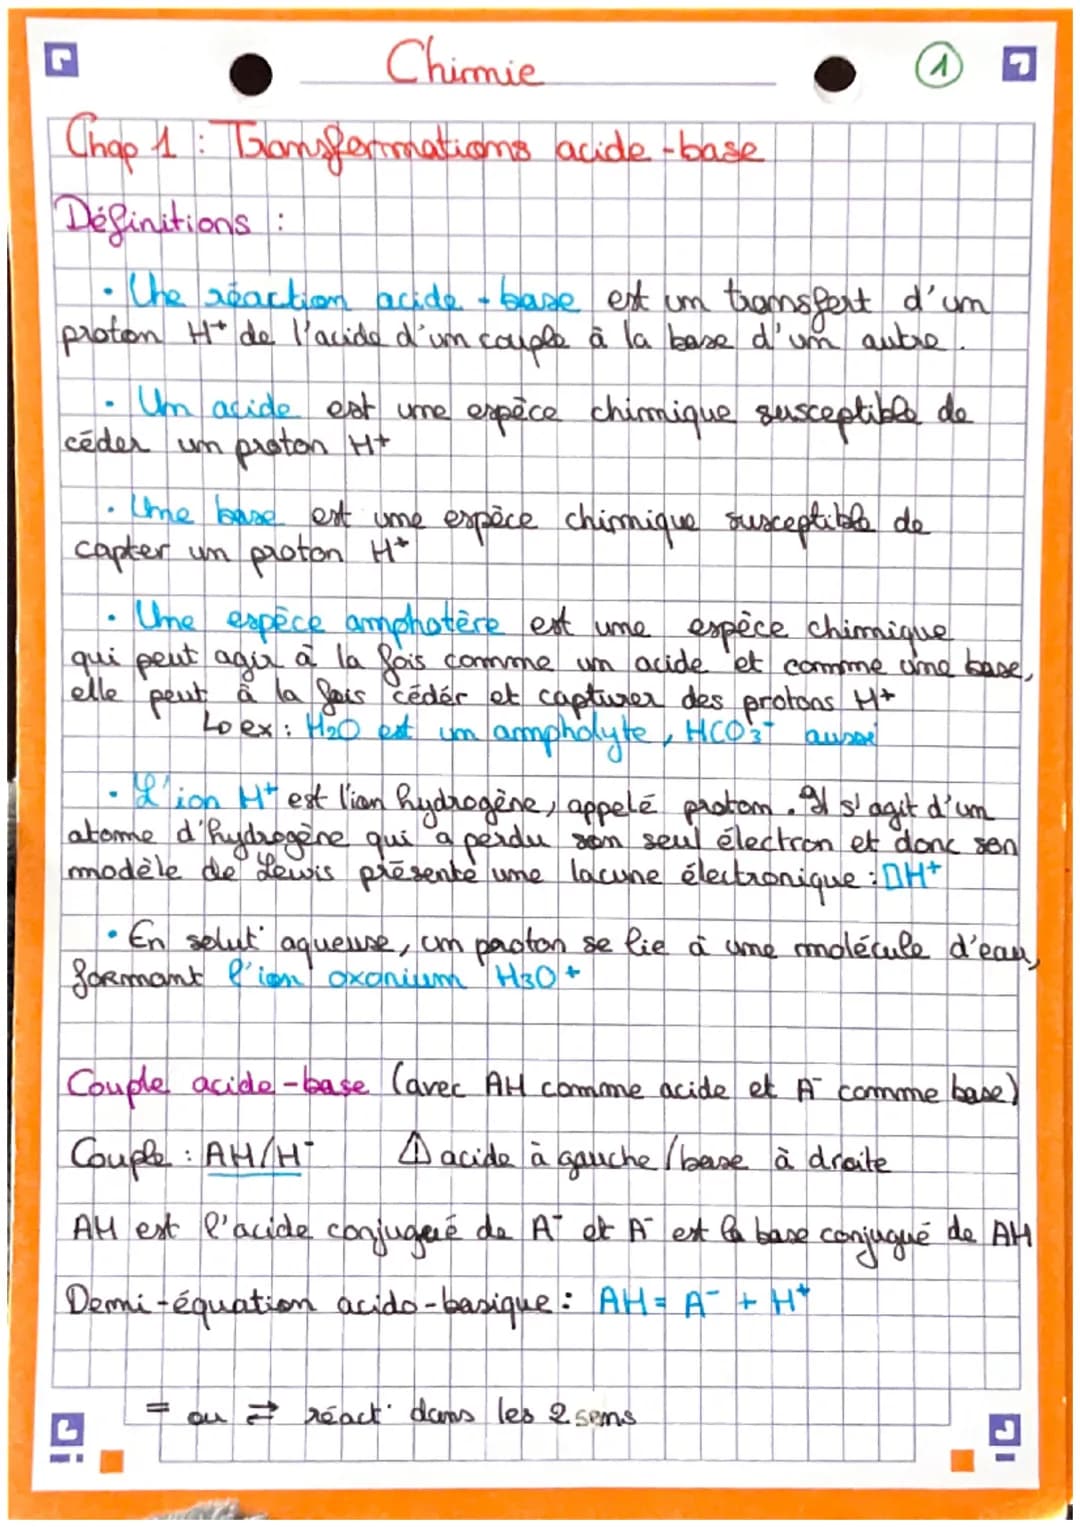 Chimie
1
Chap 1 : Transformations acide-base
Définitions :
• Une réaction acide-base est un transfert d'un
proton H⁺ de l'acide d'un couple à la base d'un autre.
• Un acide est une espèce chimique susceptible de
céder un proton H+
• Une base est une espèce chimique susceptible de
capter un proton H⁺
• Une espèce amphotère est une espèce chimique
qui peut agir à la fois comme un acide et comme une base,
elle peut à la fois céder et capturer des protons H+
↳ ex : H2O est un ampholyte, HCO3⁻ aussi
• L'ion H⁺ est l'ion hydrogène, appelé proton. Il s'agit d'un
atome d'hydrogène qui a perdu son seul électron et donc son
modèle de Lewis présente une lacune électronique : □H⁺
• En solut° aqueuse, un proton se lie à une molécule d'eau,
formant l'ion oxonium H3O+
Couple acide-base (avec AH comme acide et A⁻ comme base)
Couple : AH/H⁻ ⚠ acide à gauche / base à droite
AH est l'acide conjugué de A⁻ et A⁻ est la base conjugué de AH
Demi-équation acido-basique : AH = A⁻ + H⁺
= ou ⇌ réact° dans les 2 sens